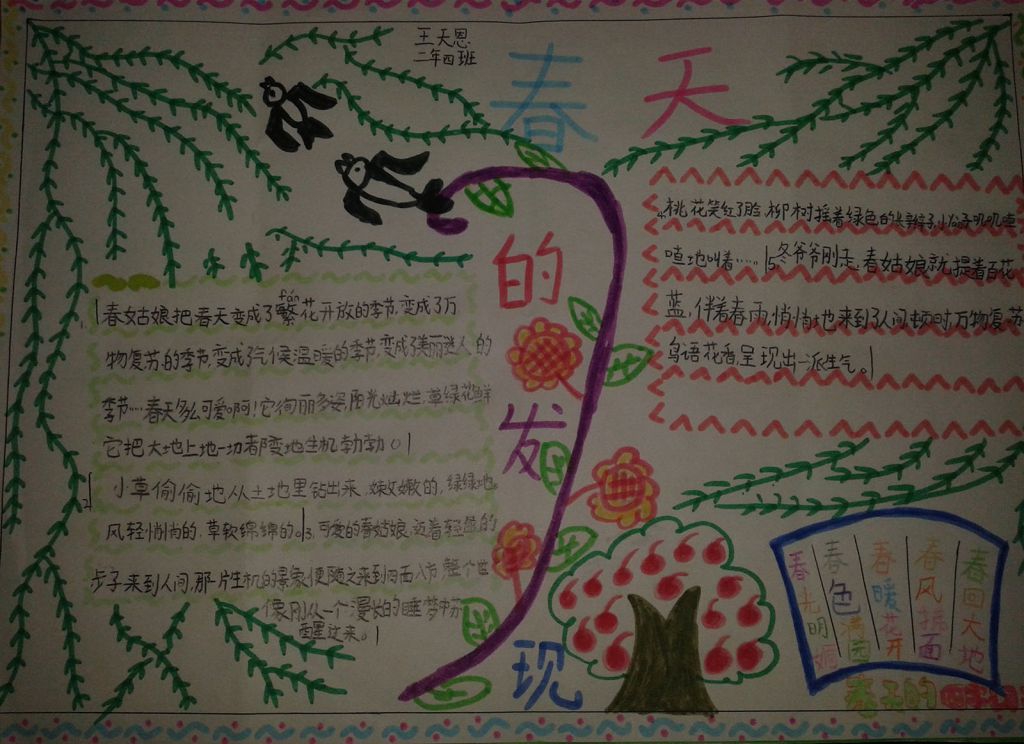 王天恩
二年四班
春天
的发现
1 春姑娘把春天变成了繁花开放的季节,变成了万
fán
物复苏的季节,变成了气候温暖的季节,变成了美丽迷人的
季节……春天多么可爱啊!它绚丽多姿,阳光灿烂,草绿花鲜
它把大地上地一切都变地生机勃勃。
2 小草偷偷地从土地里钻出来,嫩嫩的,绿绿地。
风轻悄悄的,草软绵绵的。3.可爱的春姑娘,迈着轻盈的
步子来到人间,那片生机的景象便随之来到四面八方,整个世
像刚从一个漫长的睡梦中苏
醒过来。
4.桃花笑红了脸,柳树摇着绿色的长辫子,小燕子叽叽喳
喳地叫着……5.冬爷爷刚走,春姑娘就提着百花
蓝,伴着春雨,悄悄地来到了人间,顿时,万物复苏
鸟语花香,呈现出一派生气。
春光明媚
春色满园
春暖花开
春风拂面
春回大地
春天的四字词